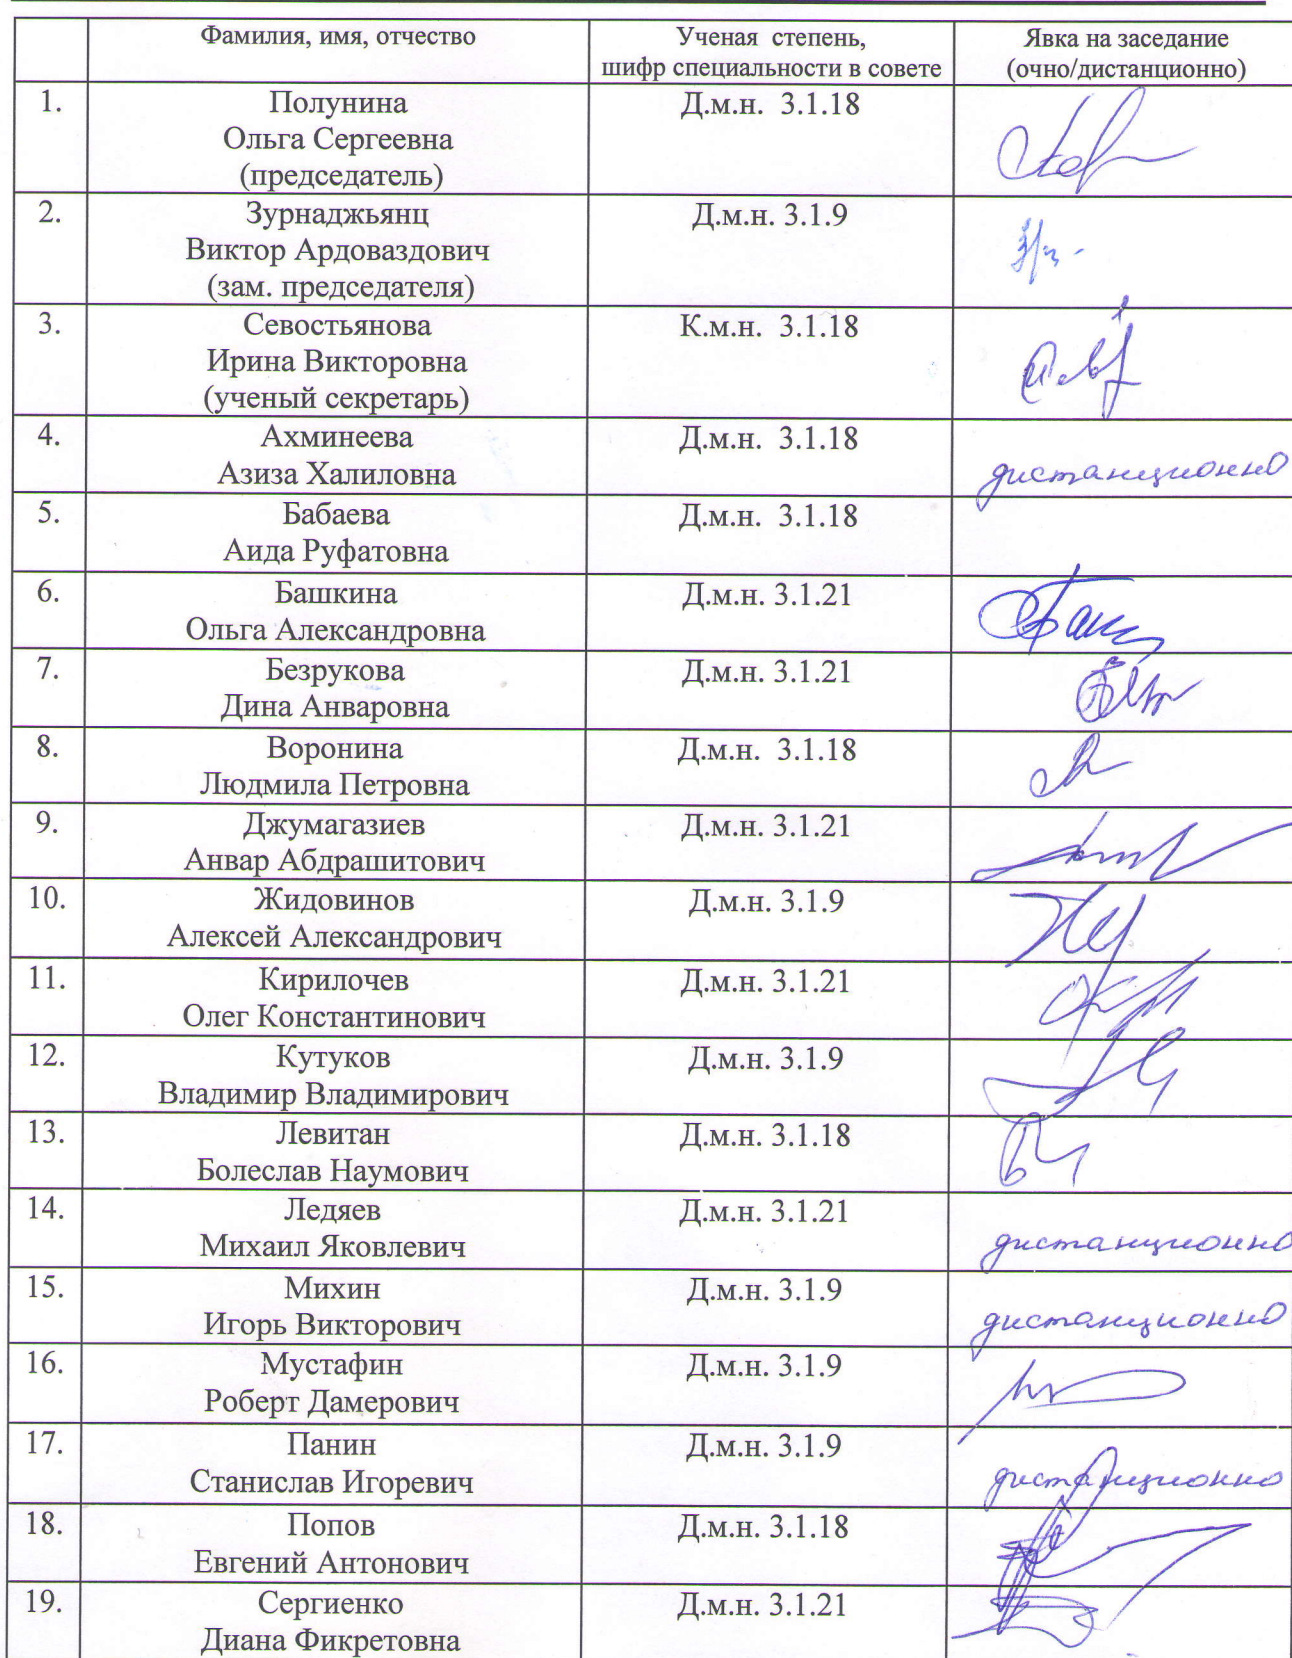 Фамилия, имя, отчество
Ученая степень,
шифр специальности в совете
Явка на заседание
(очно/дистанционно)
1.
Полунина
Ольга Сергеевна
(председатель)
Д.м.н. 3.1.18
2.
Зурнаджьянц
Виктор Ардоваздович
(зам. председателя)
Д.м.н. 3.1.9
3.
Севостьянова
Ирина Викторовна
(ученый секретарь)
К.м.н. 3.1.18
4.
Ахминеева
Азиза Халиловна
Д.м.н. 3.1.18
дистанционно
5.
Бабаева
Аида Руфатовна
Д.м.н. 3.1.18
6.
Башкина
Ольга Александровна
Д.м.н. 3.1.21
7.
Безрукова
Дина Анваровна
Д.м.н. 3.1.21
8.
Воронина
Людмила Петровна
Д.м.н. 3.1.18
9.
Джумагазиев
Анвар Абдрашитович
Д.м.н. 3.1.21
10.
Жидовинов
Алексей Александрович
Д.м.н. 3.1.9
11.
Кирилочев
Олег Константинович
Д.м.н. 3.1.21
12.
Кутуков
Владимир Владимирович
Д.м.н. 3.1.9
13.
Левитан
Болеслав Наумович
Д.м.н. 3.1.18
14.
Ледяев
Михаил Яковлевич
Д.м.н. 3.1.21
дистанционно
15.
Михин
Игорь Викторович
Д.м.н. 3.1.9
дистанционно
16.
Мустафин
Роберт Дамерович
Д.м.н. 3.1.9
17.
Панин
Станислав Игоревич
Д.м.н. 3.1.9
дистанционно
18.
Попов
Евгений Антонович
Д.м.н. 3.1.18
19.
Сергиенко
Диана Фикретовна
Д.м.н. 3.1.21